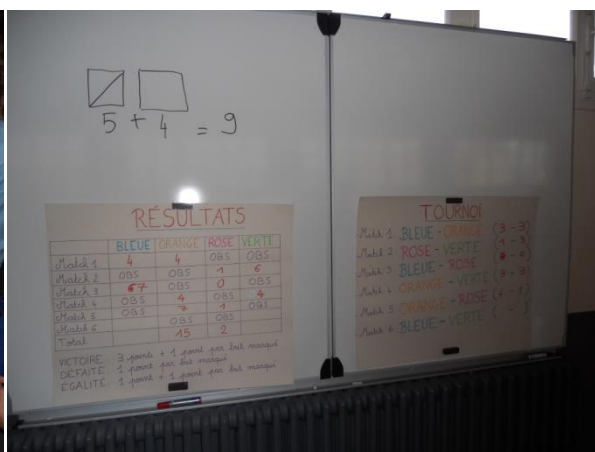 5 + 4 = 9
RÉSULTATS
BLEUE ORANGE ROSE VERTE
Match 1 4 4 OBS OBS
Match 2 OBS OBS 1 6
Match 3 7 OBS 0 OBS
Match 4 OBS 4 OBS 4
Match 5 OBS 7 1 OBS
Match 6 OBS OBS
Total 15 2
VICTOIRE : 3 points + 1 point par but marqué
DÉFAITE : 1 point par but marqué
ÉGALITÉ : 1 point + 1 point par but marqué
TOURNOI
Match 1 BLEUE - ORANGE (3 - 3)
Match 2 ROSE - VERTE (1 - 3)
Match 3 BLEUE - ROSE ( - 0)
Match 4 ORANGE - VERTE (3 - 3)
Match 5 ORANGE - ROSE ( - 1)
Match 6 BLEUE - VERTE ( - )